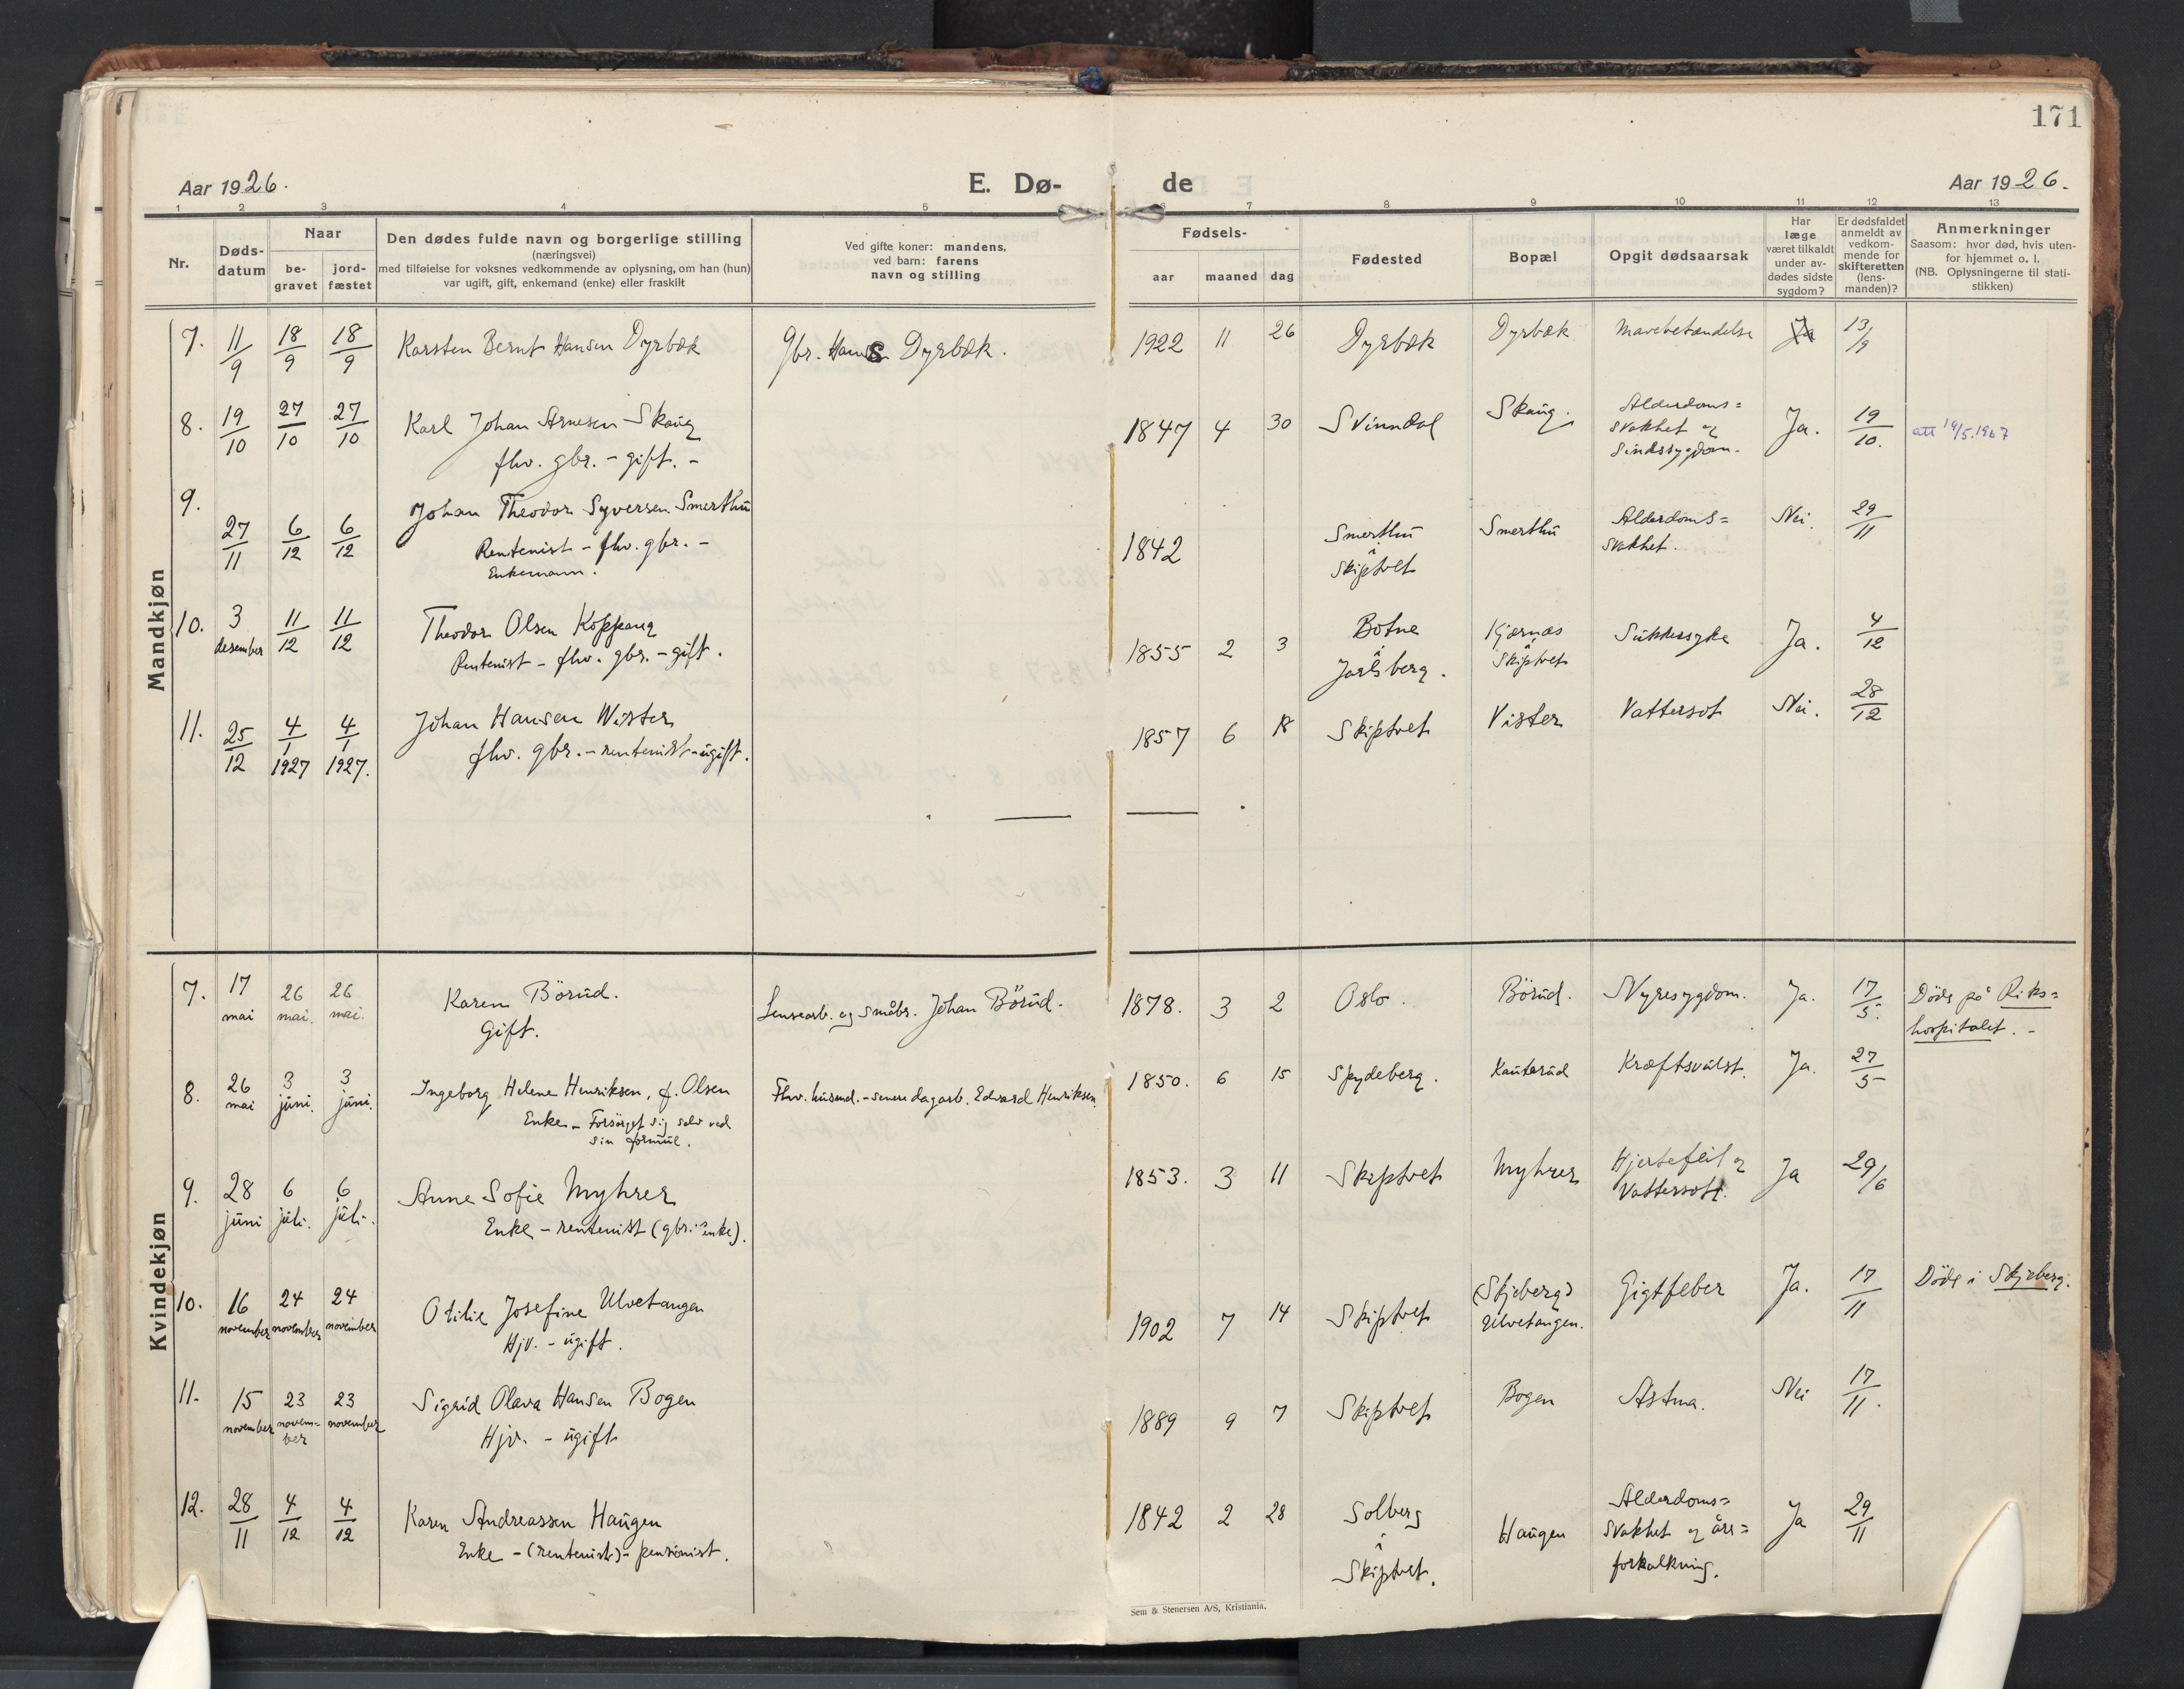 171
Aar 1926.
E. Dø-
de
Aar 1926.
1 2 3 4 5 6 7 8 9 10 11 12 13
Nr.
Døds-
datum
Naar
be-
gravet
jord-
fæstet
Den dødes fulde navn og borgerlige stilling
(næringsvei)
med tilføielse for voksnes vedkommende av oplysning, om han (hun)
var ugift, gift, enkemand (enke) eller fraskilt
Ved gifte koner: mandens,
ved barn: farens
navn og stilling
Fødsels-
aar maaned dag
Fødested
Bopæl
Opgit dødsaarsak
Har
læge
været tilkaldt
under av-
dødes sidste
sygdom?
Er dødsfaldet
anmeldt av
vedkom-
mende for
skifteretten
(lens-
manden)?
Anmerkninger
Saasom: hvor død, hvis uten-
for hjemmet o. l.
(NB. Oplysningerne til stati-
stikken)
Mandkjøn
7. 11/9 18/9 18/9 Karsten Bernt Hansen Dyrbæk Gbr. Hans Dyrbæk. 1922 11 26 Dyrbæk Dyrbæk Mavebetændelse Ja 13/9
8. 19/10 27/10 27/10 Karl Johan Arnesen Skaug 1847 4 30 Svinndal Skaug. Alderdoms= Ja. 19/10. att 19/5.1967
fhv. gbr. - gift. - svakhet og
Sindssygdom.
9. 27/11 6/12 6/12 Johan Theodor Syversen Smerthu 1842 Smerthu Smerthu Alderdoms= Nei. 29/11
Rentenist - fhv. gbr. - i svakhet.
Enkemann. Skiptvet
10. 3 desember 11/12 11/12 Theodor Olsen Koppang 1855 2 3 Botne Kjærnæs Sukkersyke Ja. 4/12
Rentenist - fhv. gbr. - gift. i Jarlsberg. i Skiptvet
11. 25/12 4/1 1927 4/1 1927. Johan Hansen Wister 1857 6 18 Skiptvet Vister Vattersot Nei. 28/12
fhv. gbr. - rentenist - ugift.
Kvindekjøn
7. 17 mai 26 mai. 26 mai. Karen Börud. Lensearb. og småbr. Johan Börud. 1878. 3 2 Oslo. Börud. Nyresygdom. Ja. 17/5. Döde på Riks=
Gift. hospitalet. -
8. 26 mai 3 juni. 3 juni. Ingeborg Helene Henriksen, f. Olsen Fhv. husmd. - senere dagarb. Edvard Henriksen. 1850. 6 15 Spydeberg. Kauterud Kræftsvulst. Ja. 27/5
Enke - Forsörget sig selv ved
sin formue.
9. 28 juni 6 juli. 6 juli. Anne Sofie Myhrer 1853. 3 11 Skiptvet Myhrer Hjertefeil og Ja 29/6
Enke - rentenist (gbr. enke). Vattersott.
10. 16 november 24 november 24 november Otilie Josefine Ulvetangen 1902 7 14 Skiptvet (Skjeberg) Gigtfeber Ja. 17/11 Döde i Skjeberg.
Hjv. - ugift. Ulvetangen.
11. 15 november 23 novem=ber 23 november Sigrid Olava Hansen Bogen 1889 9 7 Skiptvet Bogen Astma. Nei 17/11.
Hjv. - ugift
12. 28/11 4/12 4/12 Karen Andreassen Haugen 1842 2 28 Solberg Haugen Alderdoms= Ja 29/11
Enke - (rentenist) - pensionist. i svakhet og åre=
Skiptvet. forkalkning.
Sem & Stenersen A/S, Kristiania.